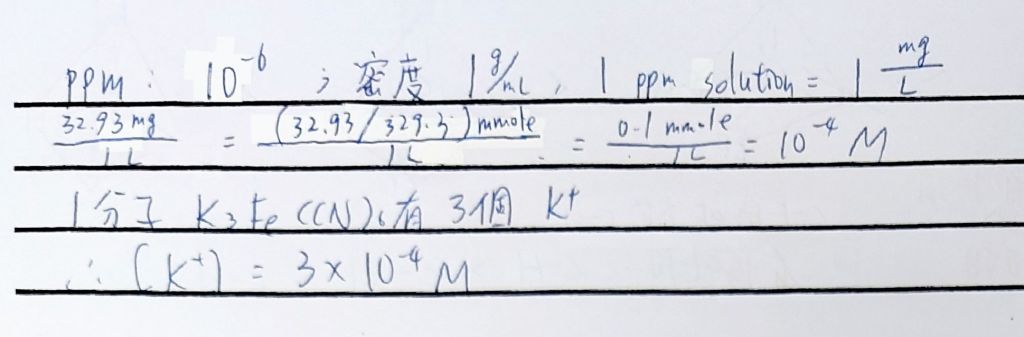 ppm : 10⁻⁶ ; 密度 1 g/mL , 1 ppm solution = 1 mg/L
32.93 mg/1L = (32.93/329.3) mmole/1L = 0.1 mmole/1L = 10⁻⁴ M
1分子 K₃Fe(CN)₆有 3個 K⁺
∴ [K⁺] = 3×10⁻⁴ M